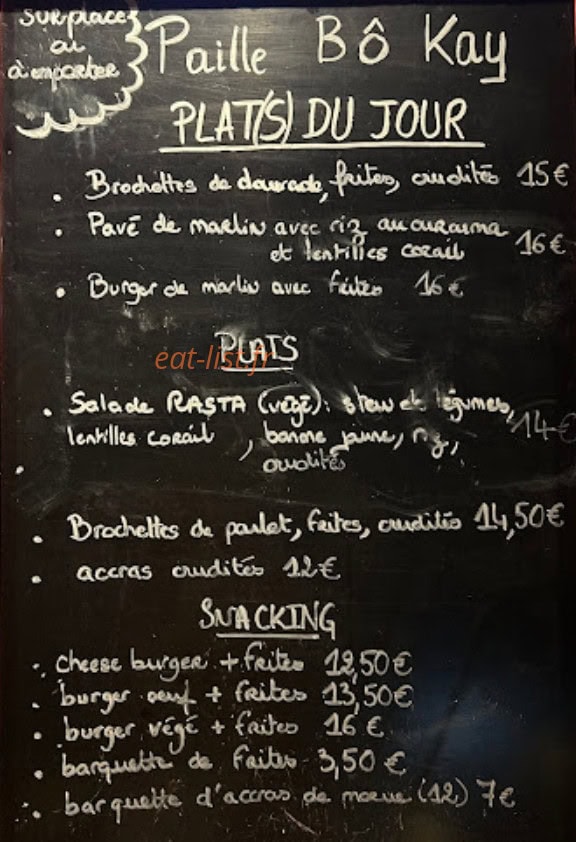 Sur place
ou
à emporter
Paille Bô Kay
PLAT(S) DU JOUR
• Brochettes de daurade, frites, crudités 15€
• Pavé de marlin avec riz au curcuma
et lentilles corail 16€
• Burger de marlin avec frites 16€
PLATS
eat-list.fr
• Salade RASTA (végé): stew de légumes,
lentilles corail, banane jaune, riz, 14€
crudités
• Brochettes de poulet, frites, crudités 14,50€
• accras crudités 12€
SNACKING
• cheese burger + frites 12,50€
• burger oeuf + frites 13,50€
• burger végé + frites 16€
• barquette de frites 3,50€
• barquette d'accras de morue (12) 7€